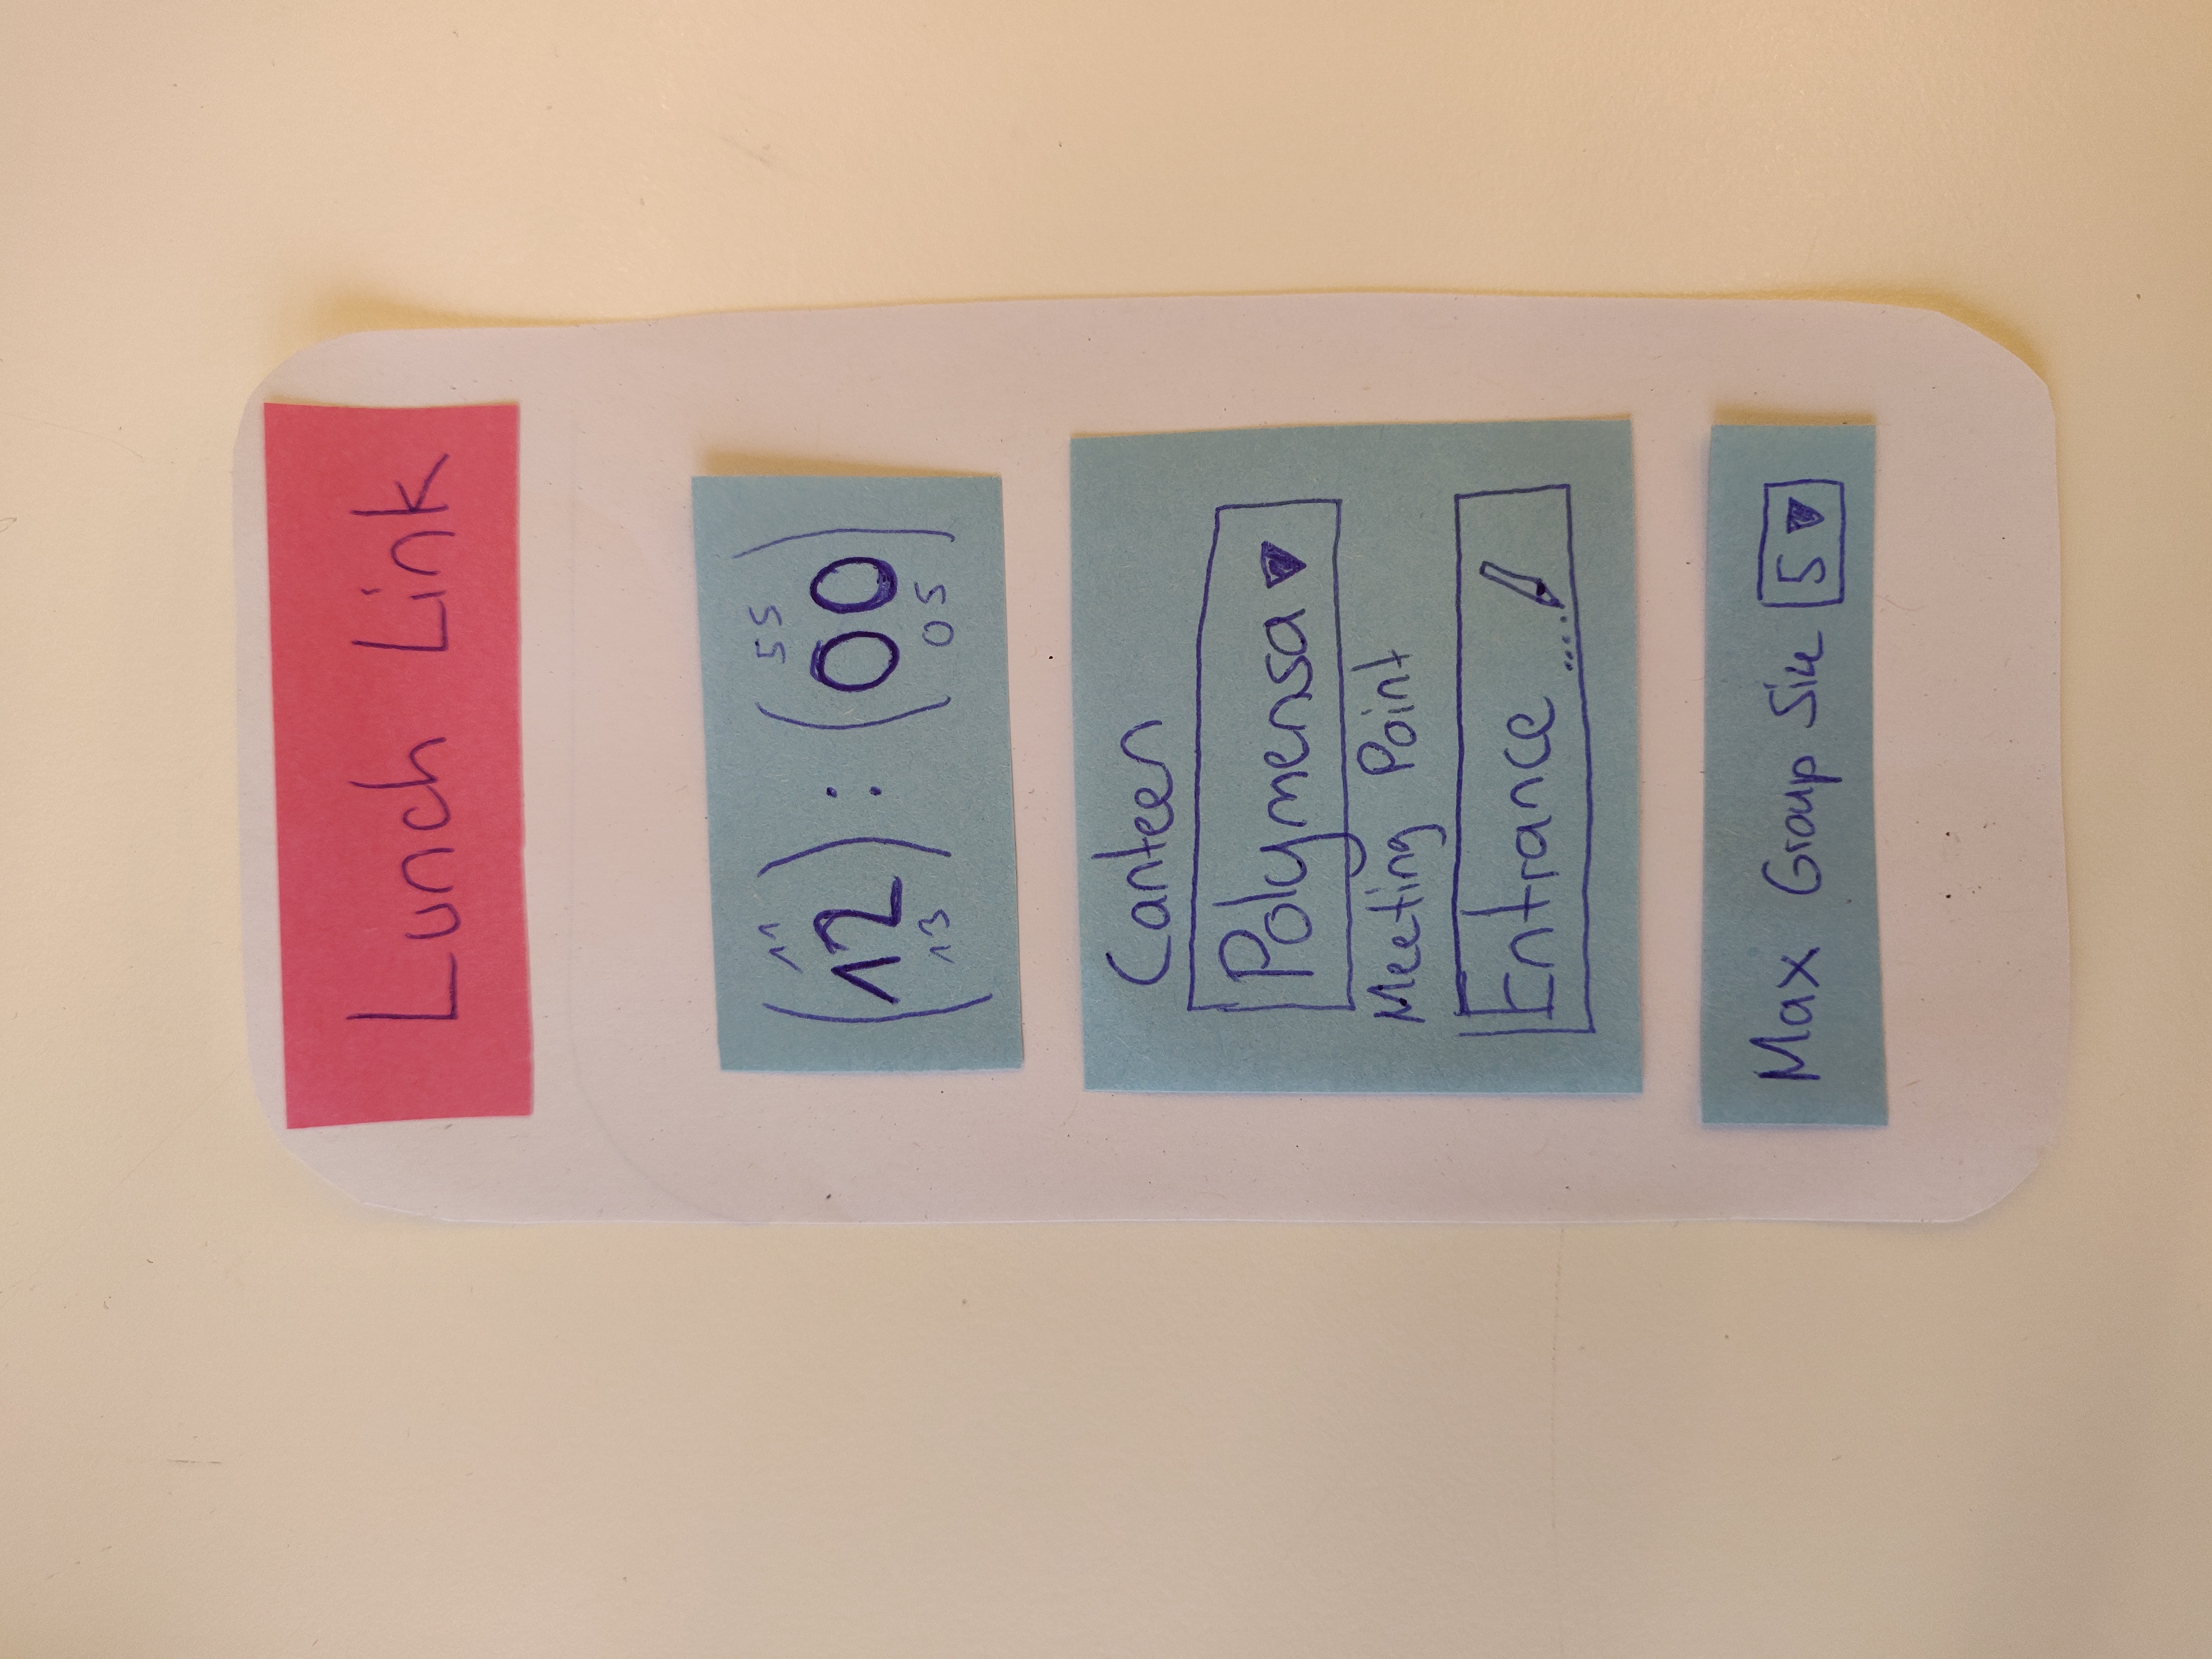 Lunch Link
11 55
12 : 00
13 05
Canteen
Polymensa
Meeting Point
Entrance ....
Max Group Size 5